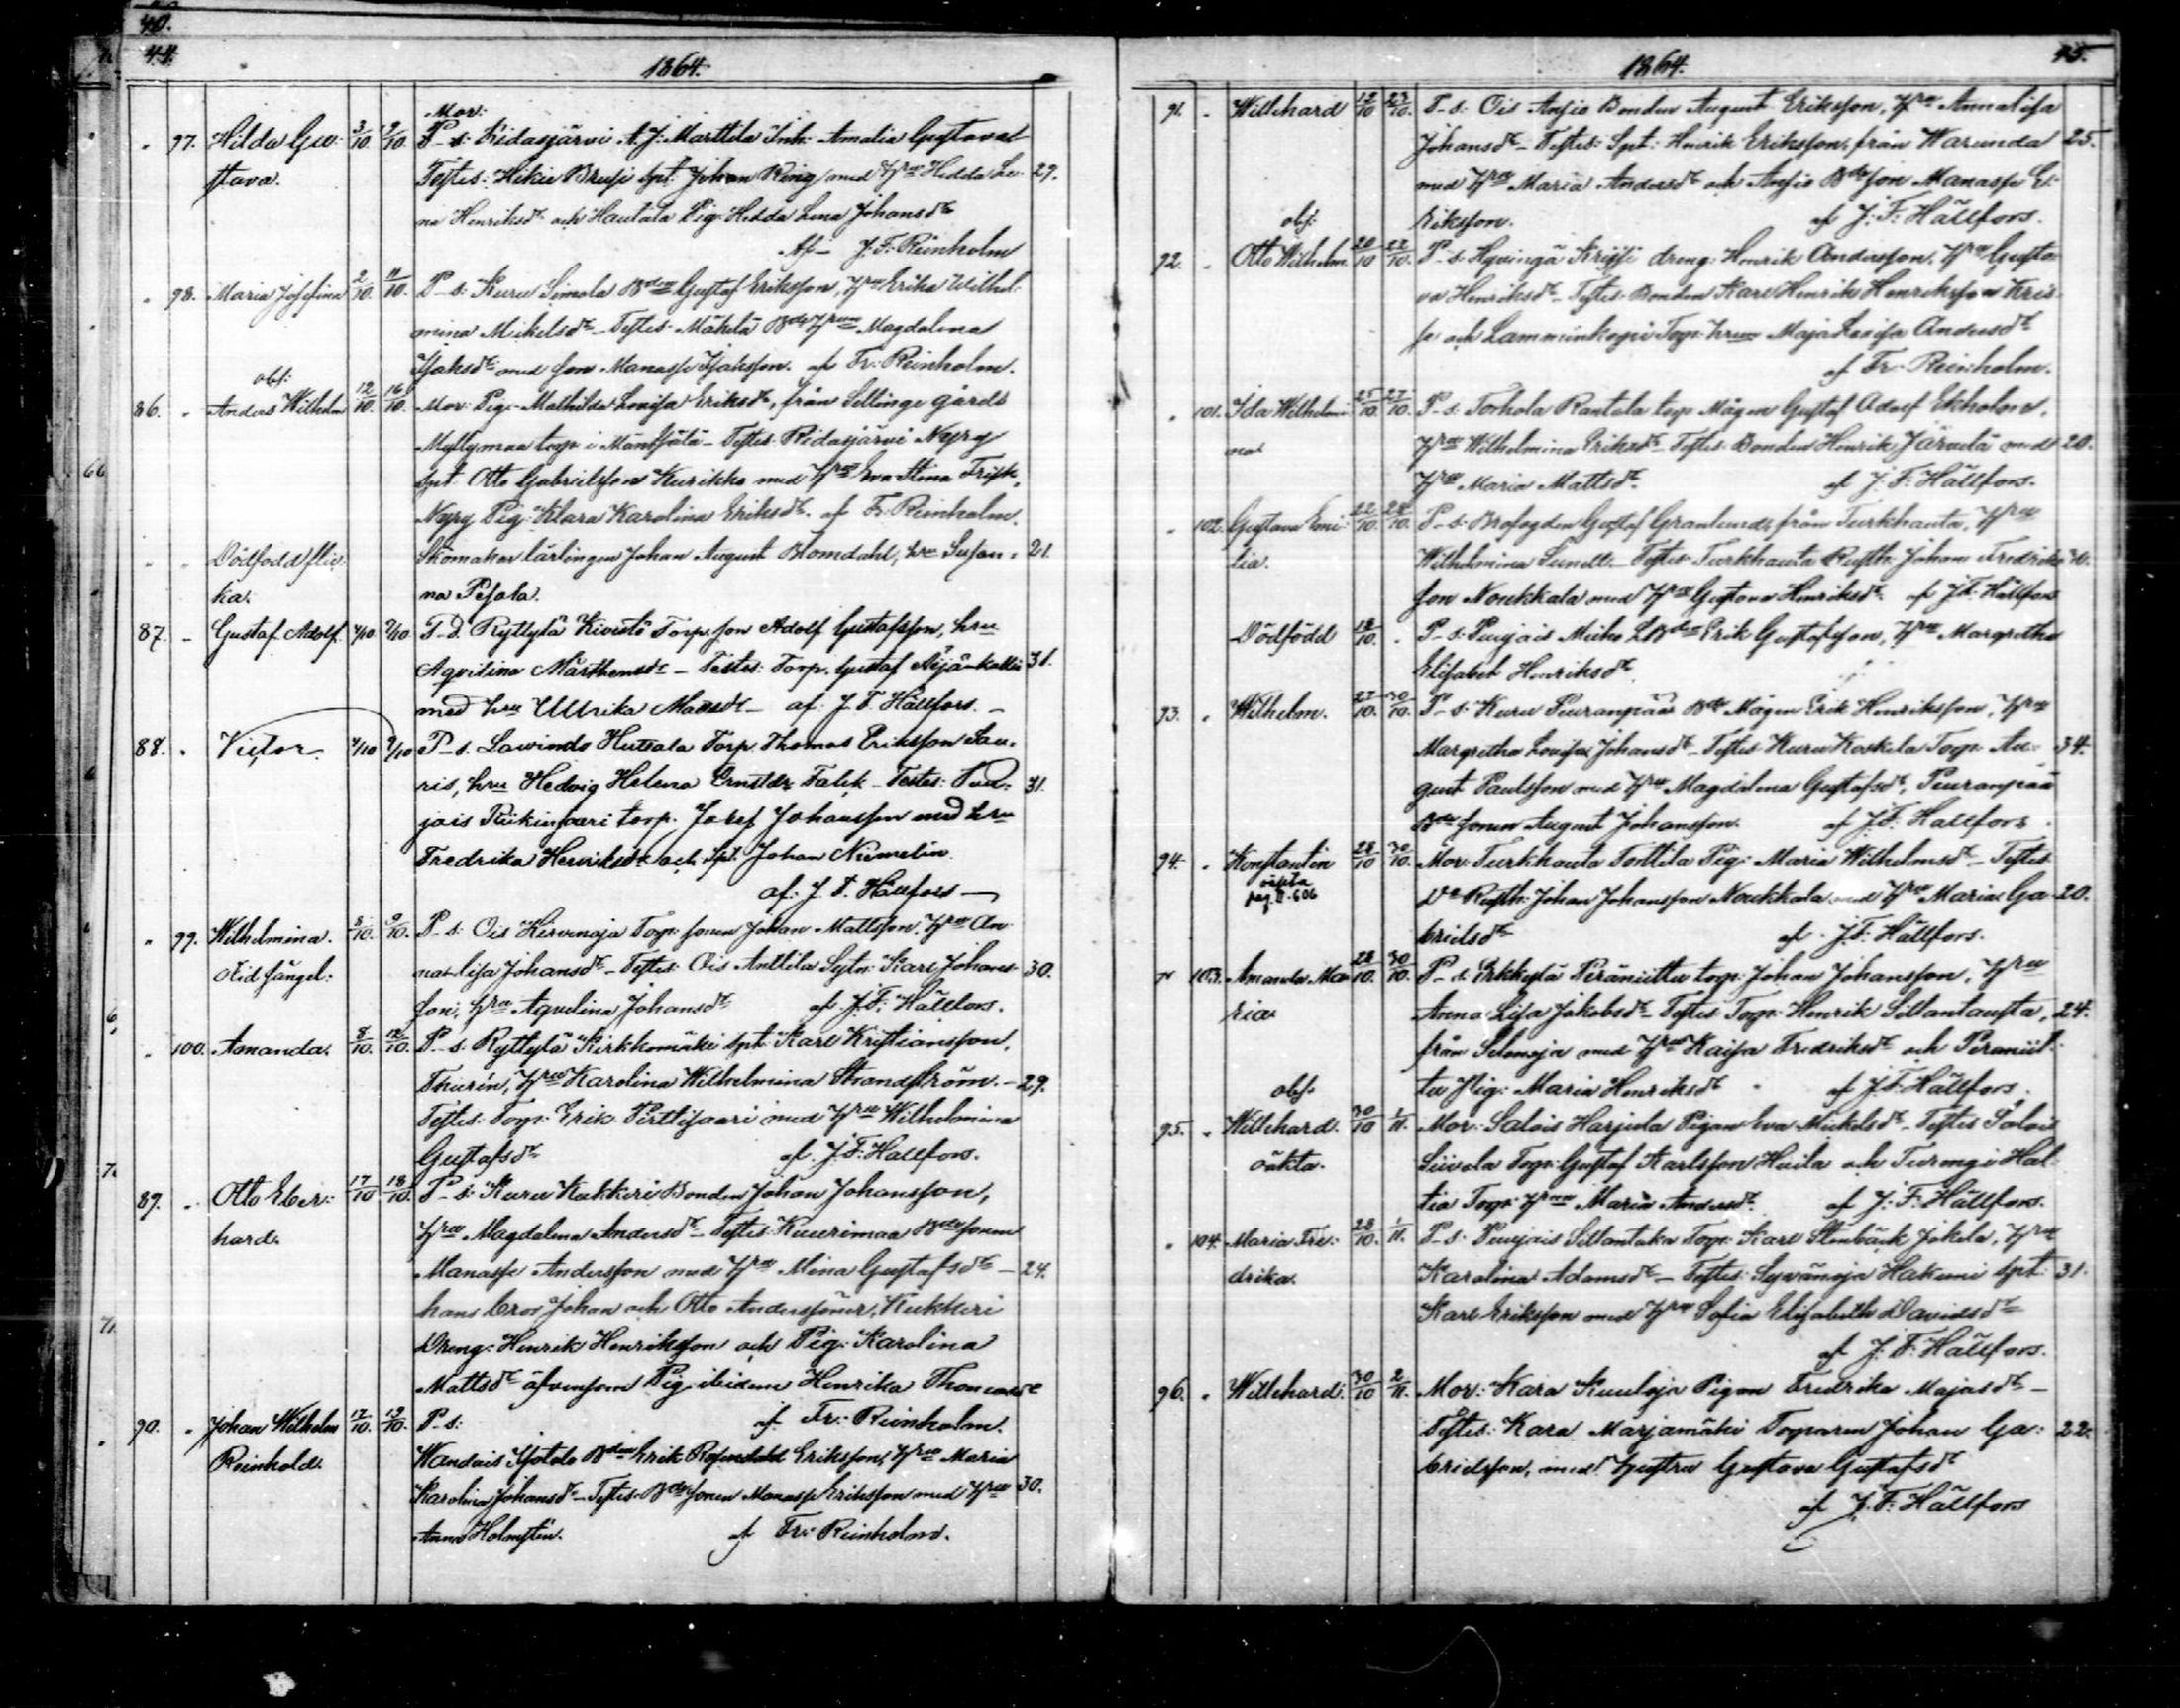 40.
44.
1864.
Mor:
" 97. Hilda Gu: 3/10. 9/10. P-s: Ridasjärvi A. J. Marttila Inh: Amalia Gustava
stava. Testes: Hikie Brusi Spt: Johan Ring med Hru Hedda Le- 29.
na Henriksdr och Hautala Pig: Hedda Lena Johansdr
Af J. F. Reinholm
" 98. Maria Josefina 2/10. 11/10. P-s: Kuru Simola Bden Gustaf Eriksson, Hru Erika Wilhel-
mina Mikelsdr - Testes: Mäkelä Bde Hrun Magdalena
Isaksdr med son Manasse Isaksson. af Fr: Reinholm.
obs:
86. " Anders Wilhelm 12/10. 16/10. Mor: Pig: Mathilda Lovisa Eriksdr, från Sellinge gårds
Myllymaa torp i Mäntsälä - Testes: Ridasjärvi Nyry
Spt Otto Gabrielsson Kurikka med Hru Eva Stina Frisk,
Nyry Pig: Klara Karolina Eriksdr. af Fr: Reinholm.
" " Dödfödd flic- Skomakar lärlingen Johan August Blomdahl, hru Susan- 21.
ka. na Pesola.
87. - Gustaf Adolf. 4/10 9/10 P-s. Ryttylä Kivistö Torp. son Adolf Gustafsson, hru
Aqvilina Mårthensdr - Testes: Torp. Gustaf Äijänkallio 31.
med hru Ullrika Matsdr - af: J. F. Hällfors. -
88. " Victor. 4/10 9/10 P-s. Lavinto Hutsala Torp. Thomas Eriksson Lau-
ris, hru Hedvig Helena Ernstdr Falck - Testes: Puu- 31.
jois Riikinsaari torp. Josef Johansson med hru
Fredrika Henriksdr och Spt. Johan Niemelin
af: J. F. Hällfors -
" 99. Wilhelmina. 8/10. 9/10. P-s: Ois Hirvenoja Torp: sonen Johan Mattsson, Hru An-
Kid fängel: na Lisa Johansdr - Testes: Ois Anttila Sytn: Karl Johans- 30.
son, hru Aqvilina Johansdr af J. F. Hällfors.
" 100. Amanda. 8/10. 12/10. P-s: Ryttylä Kirkkomäki Spt: Karl Kristiansson
Thurén, Hru Karolina Wilhelmina Strandström. - 29.
Testes: Torp: Erik Pirttisaari med Hru Wilhelmina
Gustafsdr af J. F. Hällfors.
89. " Otto Eber- 17/10 18/10. P-s: Kuru Kukkeri Bonden Johan Johansson,
hard. Hru Magdalena Andersdr - Testes: Kuurimaa Bde sonen
Manasse Andersson med Hru Mina Gustafsdr - 24.
hans bror Johan och Otto Anderssöner, Kukkeri
Dreng: Henrik Henriksson och Pig: Karolina
Mattsdr äfvensom Pig. ibidem Henrika Thomasdr
90. " Johan Wilhelm 17/10. 19/10. P-s: af Fr: Reinholm.
Reinhold. Wandais Isotalo Bden Erik Rosendahl Eriksson, Hru Maria
Karolina Johansdr - Testes: Bde sonen Manasse Eriksson med Hru 30.
Anna Holmstén. af Fr: Reinholm.
1864.
45.
91. " Willehard 12/10 23/10. P-s: Ois Ansio Bonden August Eriksson, Hru Annalisa
Johansdr - Testes: Spt: Henrik Eriksson, från Warunda 25.
med Hru Maria Andersdr och Ansio Bde son Manasse E-
obs: riksson. af J. F. Hällfors.
92. " Otto Wilhelm. 20/10 22/10. P-s: Hyvingä Krissi dreng: Henrik Andersson, Hru Gusta-
va Henriksdr - Testes: Bonden Karl Henrik Henriksson Kris-
si och Lamminkorpi Torp: hrun Maja Lovisa Andersdr
af Fr: Reinholm.
" 101. Ida Wilhelmi- 25/10. 27/10. P-s: Torhola Rantala torp: Mågen Gustaf Adolf Ekholm,
na Hru Wilhelmina Eriksdr - Testes: Bonden Henrik Järvelä med 20.
Hru Maria Mattsdr. af J. F. Hällfors.
" 102. Gustava Emi- 22/10. 28/10. P-s: Brofogden Gustaf Granlund, från Turkhauta, Hru
lia. Wilhelmina Sundell - Testes: Turkhauta Rusth: Johan Fredriks-
son Noukkala med Hru Gustava Henriksdr. af J. F. Hällfors
Dödfödd 18/10. " P-s: Puujais Erik Gustafsson, Hru Margretha
Elisabet Henriksdr.
93. " Wilhelm. 27/10. 30/10. P-s: Kuru Peuranpää Bde Mågen Erik Henriksson, Hru
Margretha Lovisa Johansdr - Testes: Kuru Koskela Torp: Au- 34.
gust Paulsson med Hru Magdalena Gustafsdr, Peuranpää
Bde sonen August Johansson. af J. F. Hällfors.
94. " Konstantin 28/10. 30/10. Mor: Turkhauta Tonttila Pig: Maria Wilhelmsdr - Testes:
oäkta
pag. II. 606 Rusth: Johan Johansson Noukkala med Hru Maria Ga- 20.
brielsdr af J. F. Hällfors.
" 103. Amanda Ma- 28/10. 30/10. P-s: Erkkylä Peräniittu torp: Johan Johansson, Hru
ria Anna Lisa Jakobsdr - Testes: Torp: Henrik Sillantausta, 24.
från Selenoja med Hru Kaisa Fredriksdr och Peräniit-
obs. tu Pig: Maria Henriksdr af J. F. Hällfors.
95. " Willehard. 30/10 1/11. Mor: Salois Harjula Pigan Eva Mickelsdr - Testes: Salois
oäkta. Siivola Torp: Gustaf Karlsson Huila och Turengi Hal-
tia Torp: Hrun Maria Andersdr. af J. F. Hällfors.
" 104. Maria Fre- 28/10. 1/11. P-s: Puujais Sillantaka Torp: Karl Stenbäck Jokela, Hru
drika. Karolina Adamsdr - Testes: Syvänoja Hakumi Spt: 31.
Karl Eriksson med Hru Sofia Elisabeth Davidsdr
af J. F. Hällfors.
96. " Willehard. 30/10 2/11. Mor: Kara Kuuloja Pigan Fredrika Majasdr -
Testes: Kara Marjamäki Torparen Johan Ga- 22.
brielsson, med Hustru Gustava Gustafsdr
af J. F. Hällfors